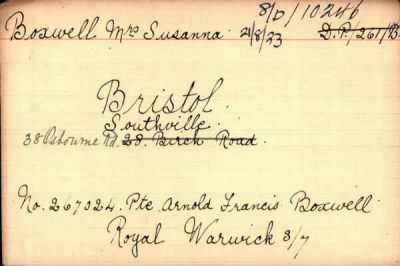 8/D/10246
Boxwell Mrs Susanna. 21/8/23 D.P./261/B.
Bristol.
Southville.
38 Osbourne Rd. 28. Birch Road.
No. 267024. Pte Arnold Francis Boxwell.
Royal Warwick 3/7